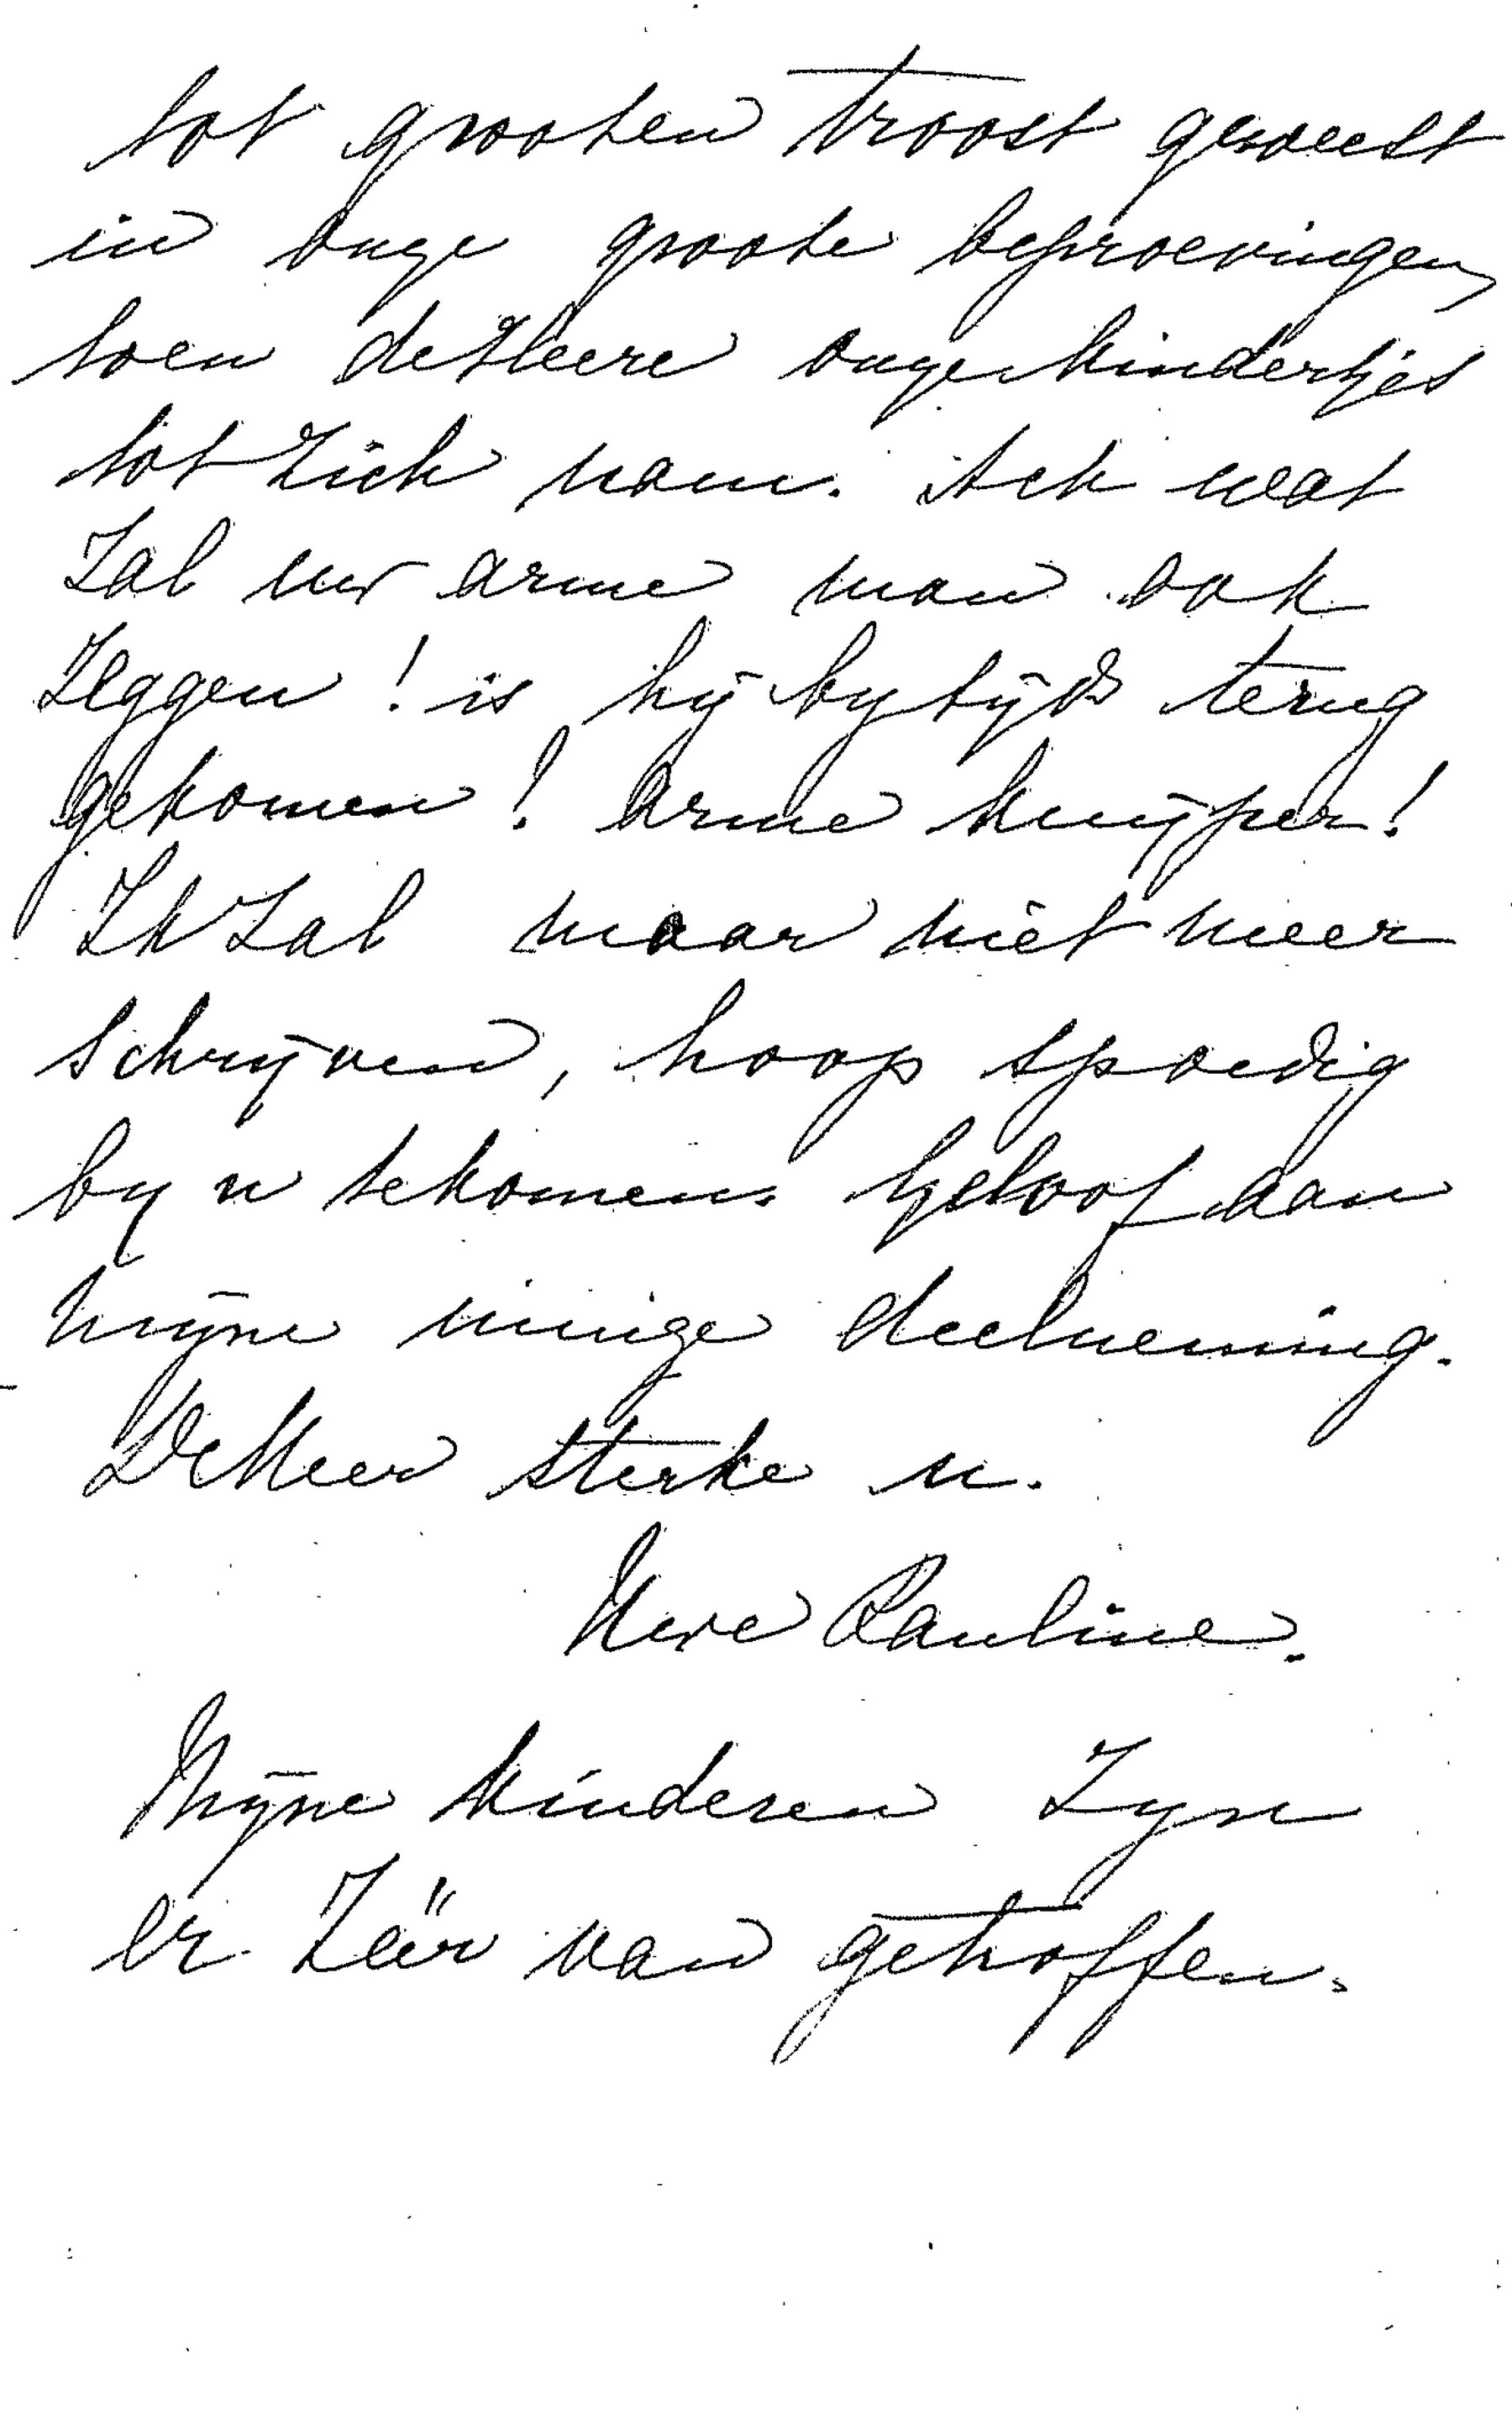 tot grooten troost geweest
in onze groote beproevingen,
toen de Heere onze kindertjes
tot Zich nam. Ach wat
Zal uw arme man ook
Zeggen! is hij bytijds terug
gekomen! Arme Kuijper!
Ik Zal maar niet meer
schrijven, hoop spoedig
by u te komen. geloof aan
mijne innige deelneming.
De Heer sterke u.
Uwe Pauline.
Mijne kinderen Zyn
er Zéér van getroffen.